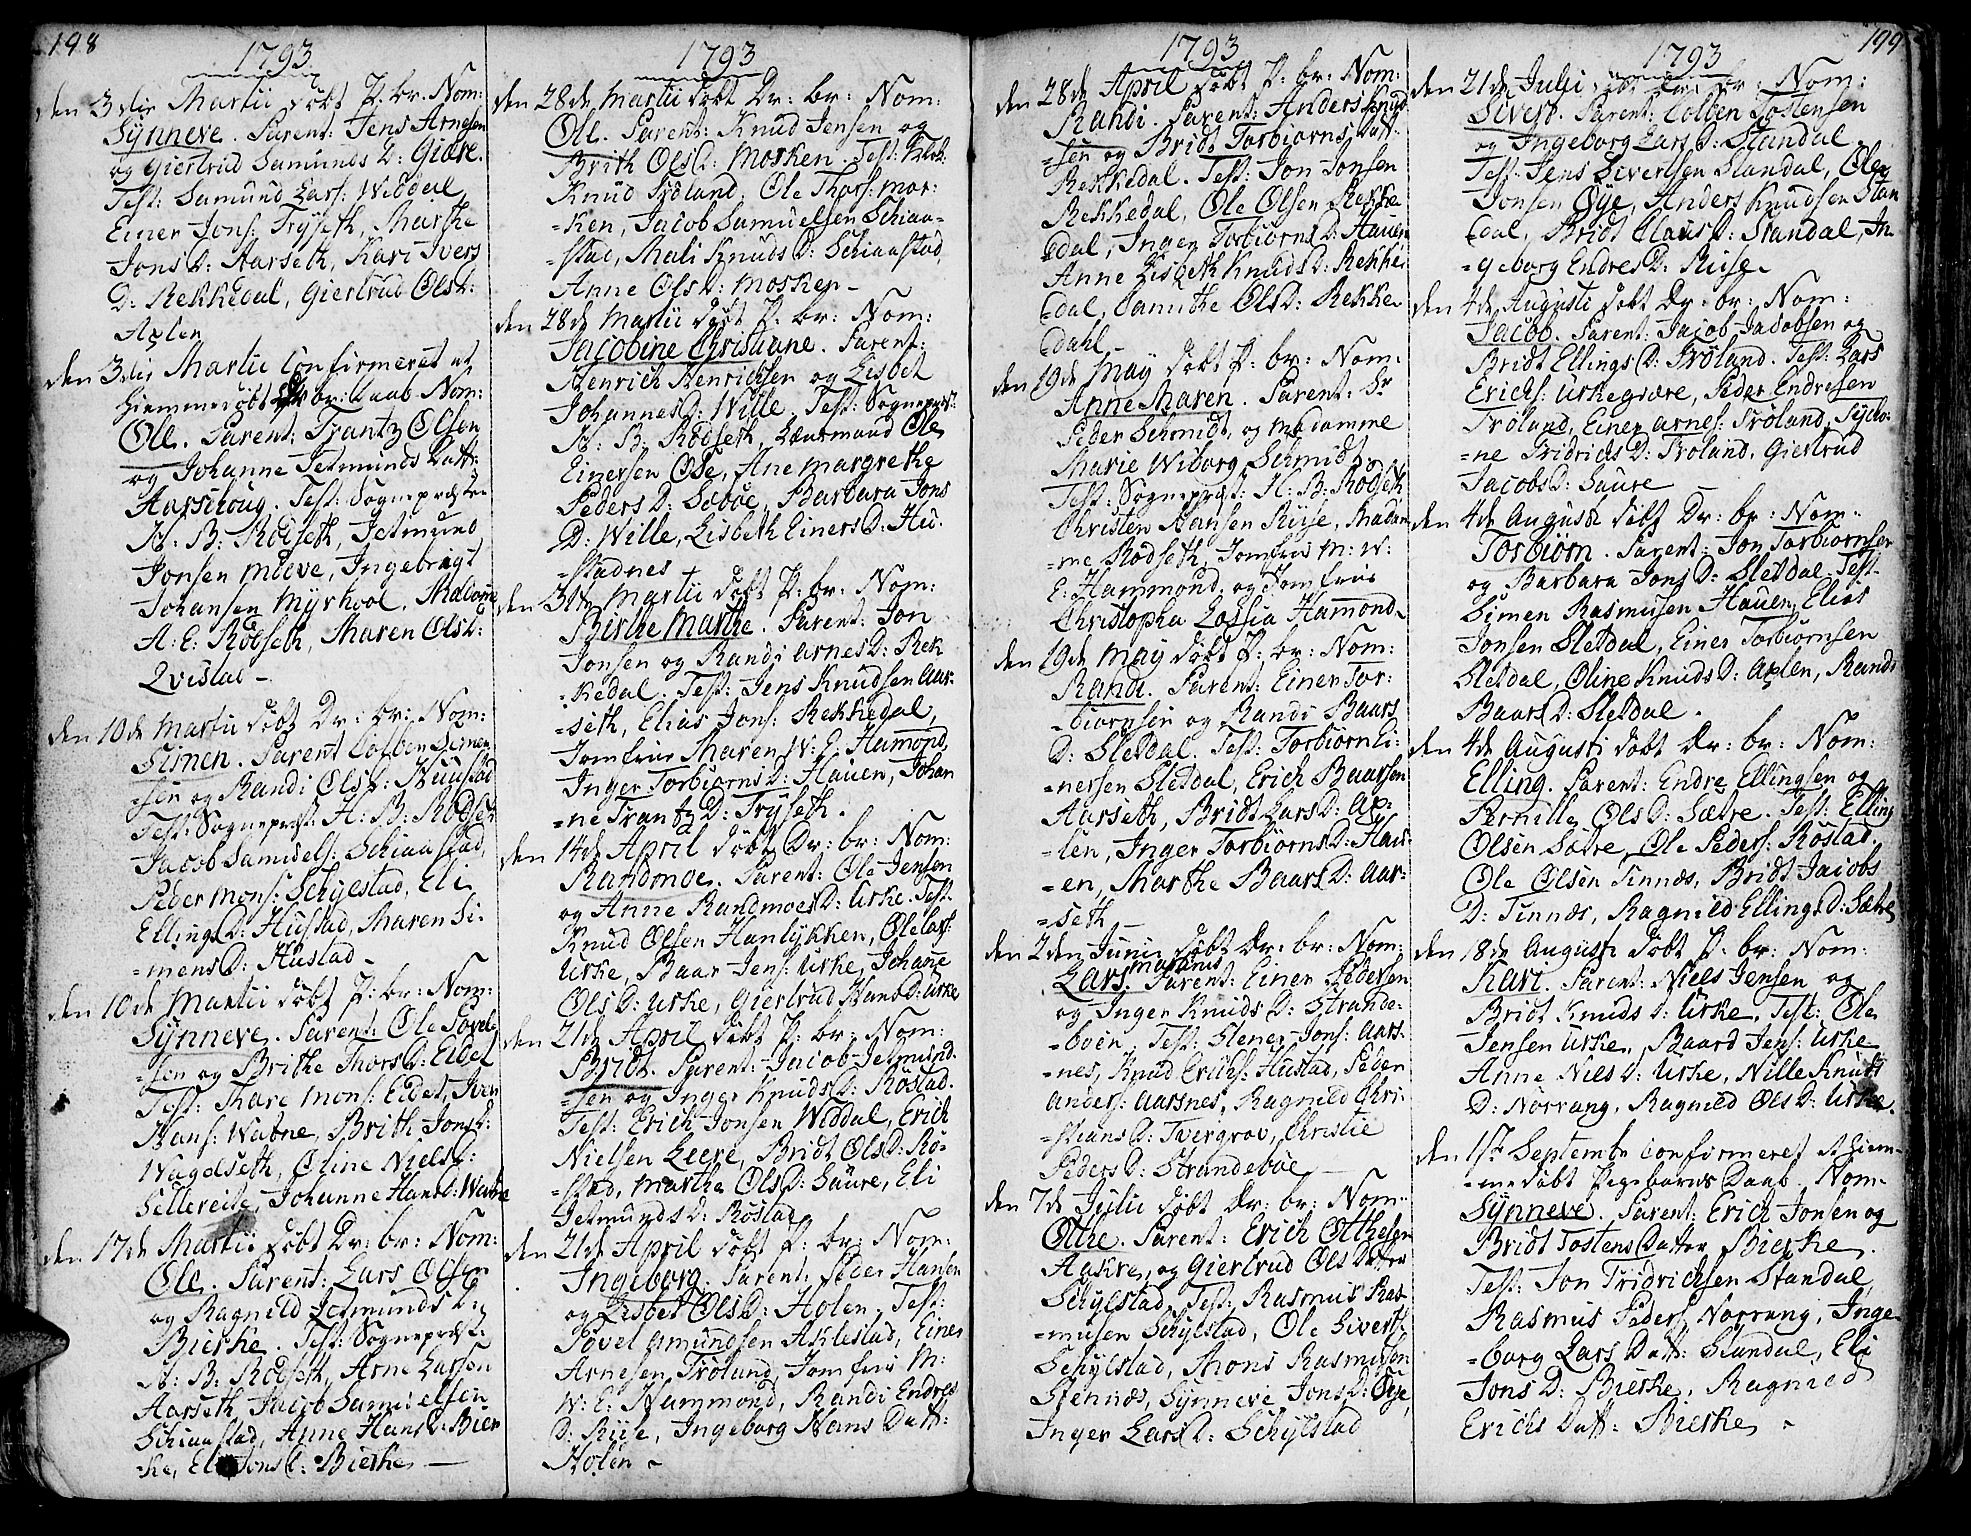 198
1793
den 3die Martii döbt P: br: Nom:
Synneve. Parent: Jens Arnesen
og Giertrud Samunds D: Giære.
Test: Samund Lars: Widdal
Einer Jons: Tryseth, Marthe
Jons D: Aarseth, Kari Ivers
D: Rekkedal, Giertrud Ols D:
Axlen
den 3die Martii Confirmeret et
hiemmedöbt br: Daab Nom:
Ole. Parent: Frantz Olsen
og Johanne Jetmunds Datt:
Aarskoug. Test: Sognepræsten
H: B: Rödseth, Jetmund
Jonsen Moeve, Ingebrigt
Johansen Myrhool, Madame
A: E: Rödseth, Maren Ols D:
Qvistad -
den 10de Martii döbt Dr: br: Nom:
Simen. Parent Colben Simen
=sen og Randi Ols D: Huustad
Test: Sognepræst: H: B: Rödset
Jacob Samuels: Schiaastad,
Peder Mons: Schylstad, Eli
Ellings D: Hustad, Maren Si=
=mens D: Hustad -
den 10de Martii döbt P: br: Nom:
Synneve. Parent: Ole Povel
=sen og Brithe Thors D: Eidet
Test: Thare Mons: Eidet, Iver
Hans: Watne, Brith Jons D:
Wagelseth, Oline Niels D:
Sellereise, Johanne Hans D: Watne
den 17de Martii döbt Dr: br: Nom:
Ole. Parent: Lars Olsen
og Ragnild Jetmunds D:
Bierke. Test: Sognepræst:
H: B: Rödseth, Arne Larsen
Aarseth Jacob Samuelsen
Schiaastad, Anne Hans D: Bier
ke, Eli Jons D: Bierke -
1793
den 28de Martii döbt Dr: br: Nom:
Ole. Parent: Knud Jensen og
Brith Ols D: Mosken. Test: Klok:
Knud Tröland, Ole Thors: Mos=
ken, Jacob Samuelsen Schiaa=
=stad, Mali Knuds D: Schiaastad,
Anne Ols D: Mosken -
den 28de Martii döbt P: br: Nom:
Jacobine Christiane. Parent:
Henrich Henrichsen og Lisbet
Johannes D: Wille. Test: Sognepræst:
H: B: Rödseth, Lænsmand Ole
Einersen Ose, Ane Margrethe
Peders D: Sæböe, Barbara Jons
D: Wille, Lisbeth Einers D: Hu=
=stadnes
den 31te Martii döbt P: br: Nom:
Birthe Marthe. Parent: Jon
Jonsen og Randi Arnes D: Rek
=kedal. Test: Jens Knudsen Aar=
=seth, Elias Jons: Rekkedal,
Jomfrue Maren W: E: Hamond,
Inger Torbiörns D: Hauen, Johan
=ne Frantz D: Tryseth.
den 14de April döbt Dr: br: Nom:
Randmoe. Parent: Ole Jensen
og Anne Randmoes D: Urke. Test:
Knud Olsen Hanlykken, Ole Lars:
Urke, Baar Jens: Urke, Johane
Ols D: Urke, Giertrud Hans D: Urke
den 21de April döbt P: br: Nom:
Bridt. Parent: Jacob Jetmund=
=sen og Inger Knuds D: Röstad.
Test: Erich Jonsen Widdal, Erich
Nielsen Leere, Bridt Ols D: Rö=
=stad, Marthe Ols D: Saure, Eli
Jetmunds D: Röstad
den 21de April döbt P: br: Nom:
Ingeborg. Parent: Peder Hansen
og Lisbet Ols D: Holen. Test:
Povel Amundsen Aklestad, Einer
Arnesen Tröland, Jomfrue M:
W: E: Hammond, Randi Endres
D: Riise, Ingeborg Hans Datt:
Holen -
1793
den 28de April döbt P: br: Nom:
Randi. Parent: Anders Knud
=sen og Bridt Torbiörns Datt:
Rekkedal. Test: Jon Jonsen
Rekkedal, Ole Olsen Rekke
dal, Inger Torbiörns D: Hauen
Anne Lisbeth Knuds D: Rekke
dal, Jannithe Ols D: Rekke
dahl -
den 19de May döbt P: br: Nom:
Anne Maren. Parent: Sr
Peder Schmidt, og Madamme
Marie Wiborg Schmidt,
Test: Sognepræst: H: B: Rödseth
Christen Hansen Riise, Madam
=me Rödseth, Jomfrue M: W:
E: Hammond, og Jomfrue
Christopha Lossia Hamond
den 19de May döbt P: br: Nom:
Randi. Parent: Einer Tor=
=biörnsen og Randi Baars
D: Sletdal. Test: Torbiörn Ei=
=nersen Sletdal, Erich Baarsen
Aarseth, Bridt Lars D: Ax=
=len, Inger Torbiörns D: Hau=
=en, Marthe Baars D: Aar=
=seth -
den 2den Junii döbt Dr: br: Nom:
Lars Martinus. Parent: Einer Pedersen
og Inger Knuds D: Strande=
=böen. Test: Stener Jons: Aars=
=nes, Knud Erichs: Hustad, Peder
Anders: Aarsnes, Ragnild Chri=
=stians D: Tvergrov, Christie
Peders D: Strandeböe -
den 7de Julii döbt Dr: br: Nom:
Othe. Parent: Erich Othesen
Aakre, og Giertrud Ols Datter
Schylstad, Test: Rasmus Ras=
=musen Schylstad, Ole Siverts:
Schylstad, Mons Rasmusen
Stennæs, Synneve Jons D: Öye,
Inger Lars D: Schylstad
199
1793
den 21de Julii döbt Dr: br: Nom:
Sivert. Parent: Colben Tostensen
og Ingeborg Lars D: Standal.
Test: Jens Sivertsen Standal, Ole
Jonsen Öye, Anders Knudsen Stan
dal, Bridt Claus D: Standal, In=
=geborg Endres D: Riise -
den 4de Augusti döbt Dr: br: Nom:
Jacob. Parent: Jacob Jacobsen og
Bridt Ellings D: Tröland. Test: Lars
Erichs: Urkegiære, Peder Endresen
Tröland, Einer Arnes: Tröland,
=ne Fridrichs D: Tröland, Giertrud
Jacobs D: Saure
den 4de Augusti döbt Dr: br: Nom:
Torbiörn. Parent: Jon Torbiörnsen
og Barbara Jons D: Sletdal. Test:
Simen Rasmusen Hauen, Elias
Jonsen Sletdal, Einer Torbiörnsen
Sletdal, Oline Knuds D: Axlen, Randi
Baars D: Sletdal.
den 4de Augusti döbt Dr: br: Nom:
Elling. Parent: Endre Ellingsen og
Pernille Ols D: Sætre. Test: Elling
Olsen Sætre, Ole Peders: Röstad.
Ole Olsen Finnæs, Bridt Jacobs
D: Finnæs, Ragnild Ellings D: Sætre
den 18de Augusti döbt P: br: Nom:
Kari. Parent: Niels Jensen og
Bridt Knuds D: Urke. Test: Ole
Jensen Urke, Baard Jens: Urke
Anne Niels D: Urke, Nille Knuds
D: Norrang, Ragnild Ols D: Urke.
den 1ste Septembr confirmeret et hiem=
=medöbt Pigebarns Daab. Nom:
Synneve. Parent: Erich Jonsen og
Bridt Tostens Datter Bierke.
Test: Jon Fridrichsen Standal,
Rasmus Peders: Norrang, Inge=
=borg Lars Datt: Standal, Eli
Jons D: Bierke, Ragnild
Erichs Datt: Bierke -